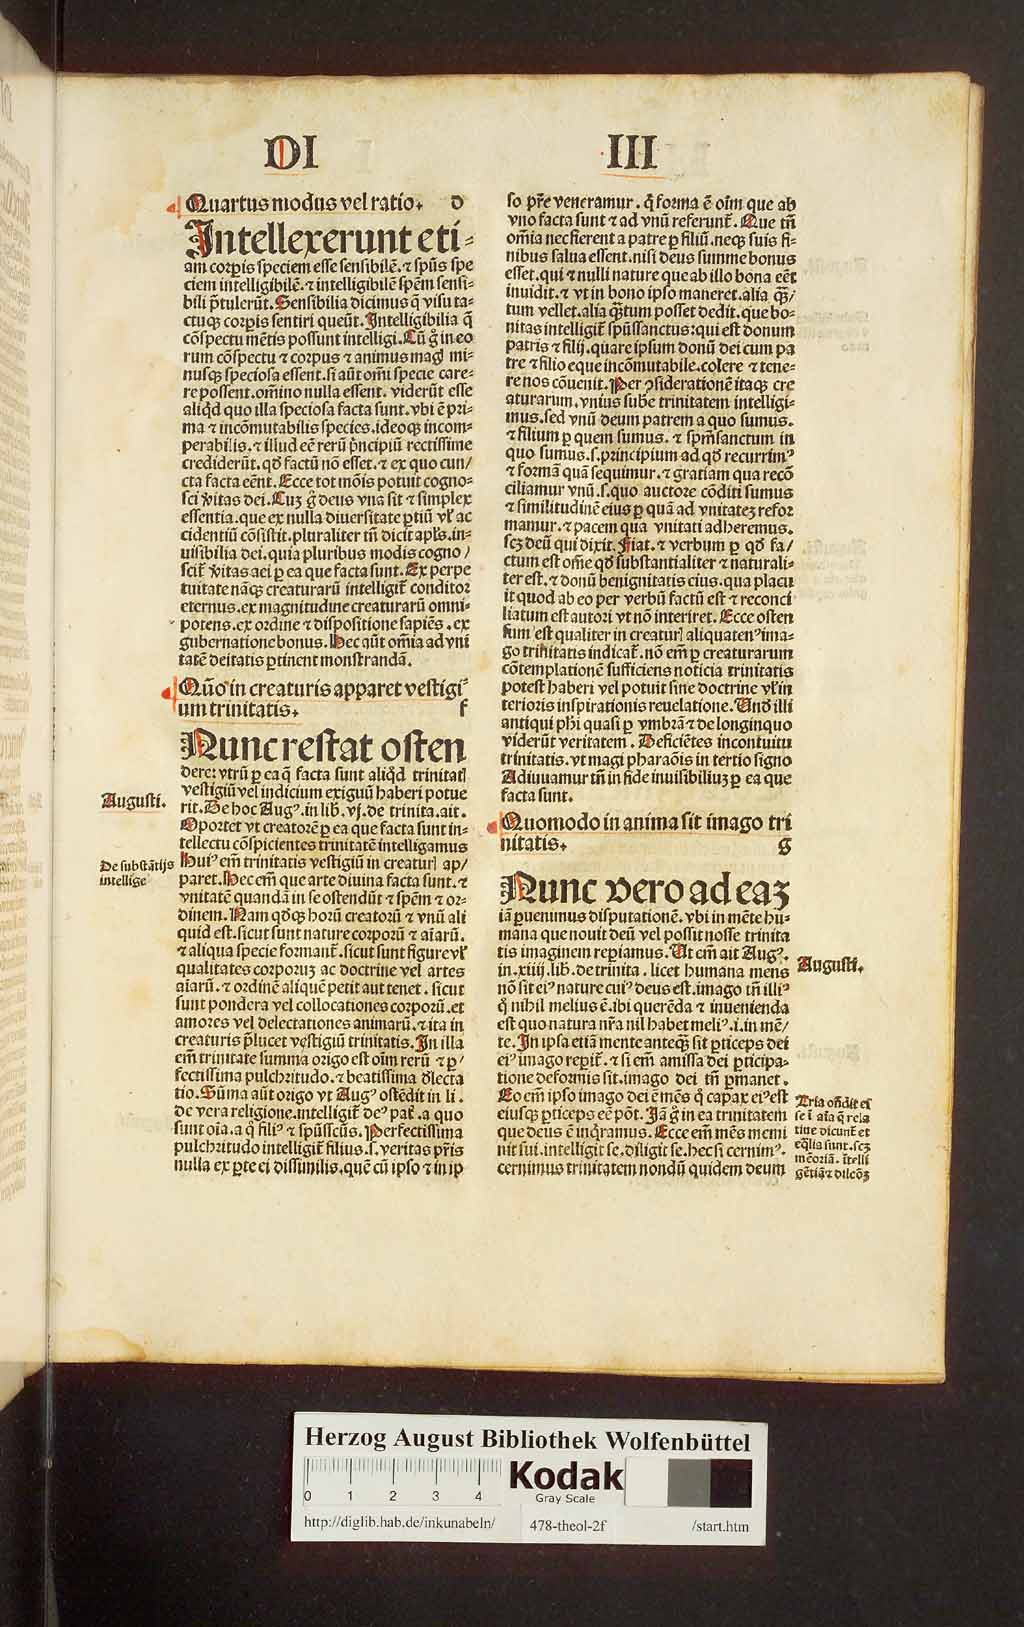 DI III
Quartus modus vel ratio. d
Intellexerunt eti⸗
am corꝑis speciem esse sensibilē. ⁊ spūs spe
ciem intelligibilē. ⁊ intelligibilē spēm sensi⸗
bili p̄tulerūt. Sensibilia dicimus q̄ visu ta⸗
ctuqꝫ corꝑis sentiri queūt. Intelligibilia q̄
cōspectu mētis possunt intelligi. Cū gͦ in eo
rum cōspectu ⁊ corpus ⁊ animus magꝭ mi⸗
nusqꝫ speciosa essent. si aūt om̄i specie care⸗
re possent. om̄ino nulla essent. viderūt esse
aliqͥd quo illa speciosa facta sunt. vbi ē pri⸗
ma ⁊ incōmutabilis species. ideoqꝫ incom⸗
perabilis. ⁊ illud eē rerū pͥncipiū rectissime
crediderūt. qd̄ factū nō esset. ⁊ ex quo cun/
cta facta eēnt. Ecce tot mōis potuit cogno⸗
sci v̄itas dei. Cuꝫ gͦ deus vna sit ⁊ simplex
essentia. que ex nulla diuersitate ꝑtiū vꝉ ac
cidentiū cōsistit. pluraliter tn̄ dicit apl̄s. in⸗
uisibilia dei. quia pluribus modis cogno/
scit᷑ v̄itas dei ꝑ ea que facta sunt. Ex perpe
tuitate nāqꝫ creaturarū intelligit᷑ conditor
eternus. ex magnitudine creaturarū omni⸗
potens. ex ordine ⁊ dispositione sapiēs. ex
gubernatione bonus. Hec aūt om̄ia ad vni
tatē deitatis ꝑtinent monstrandā.
Quō in creaturis apparet vestigi⸗
um trinitatis. f
Nunc restat osten
dere: vtrū ꝑ ea q̄ facta sunt aliqͥd trinitatꝭ
vestigiū vel indicium exiguū haberi potue
rit. De hoc Augꝰ. in lib. vj. de trinita. ait.
Oportet vt creatorē ꝑ ea que facta sunt in⸗
tellectu cōspicientes trinitatē intelligamus
Huiꝰ em̄ trinitatis vestigiū in creaturꝭ ap/
paret. Hec em̄ que arte diuina facta sunt. ⁊
vnitatē quandā in se ostendūt ⁊ spēm ⁊ or⸗
dinem. Nam qd̄qꝫ horū creatorū ⁊ vnū ali
quid est. sicut sunt nature corporū ⁊ aīarū.
⁊ aliqua specie formant᷑. sicut sunt figure vꝉ
qualitates corporuꝫ ac doctrine vel artes
aīarū. ⁊ ordinē aliquē petit aut tenet. sicut
sunt pondera vel collocationes corporū. et
amores vel delectationes animarū. ⁊ ita in
creaturis p̄lucet vestigiū trinitatis. In illa
em̄ trinitate summa origo est oīm rerū ⁊ ꝑ/
fectissima pulchritudo. ⁊ beatissima dl̄ecta
tio. Sūma aūt origo vt Augꝰ ostēdit in li.
de vera religione. intelligit᷑ deꝰ pat᷑. a quo
sunt oīa. a q̄ filiꝰ ⁊ spūsscūs. Perfectissima
pulchritudo intelligit᷑ filius. s. veritas pr̄is
nulla ex ꝑte ei dissimilis. quē cū ipso ⁊ in ip
Augusti.
De substātijs
intellige
so pr̄e veneramur. q̄ forma ē oīm que ab
vno facta sunt ⁊ ad vnū referunt᷑. Que tn̄
om̄ia nec fierent a patre ꝑ filiū. neqꝫ suis fi⸗
nibus salua essent. nisi deus summe bonus
esset. qui ⁊ nulli nature que ab illo bona eēt
inuidit. ⁊ vt in bono ipso maneret. alia q̄ꝫ/
tum vellet. alia q̄ꝫtum posset dedit. que bo⸗
nitas intelligit᷑ spūssanctus: qui est donum
patris ⁊ filij. quare ipsum donū dei cum pa
tre ⁊ filio eque incōmutabile. colere ⁊ tene⸗
re nos cōuenit. Per ꝯsiderationē itaqꝫ cre
aturarum. vnius sub̄e trinitatem intelligi⸗
mus. sed vnū deum patrem a quo sumus.
⁊ filium ꝑ quem sumus. ⁊ spm̄sanctum in
quo sumus. s. principium ad qd̄ recurrimꝰ
⁊ formā quā sequimur. ⁊ gratiam qua recō
ciliamur vnū. s. quo auctore cōditi sumus
⁊ similitudinē eius ꝑ quā ad vnitateꝫ refor
mamur. ⁊ pacem qua vnitati adheremus.
scꝫ deū qui dixit. Fiat. ⁊ verbum ꝑ qd̄ fa/
ctum est om̄e qd̄ substantialiter ⁊ naturali⸗
ter est. ⁊ donū benignitatis eius. qua placu
it quod ab eo per verbū factū est ⁊ reconci
liatum est autori vt nō interiret. Ecce osten
sum est qualiter in creaturꝭ aliquatenꝰ ima⸗
go trinitatis indicat᷑. nō em̄ ꝑ creaturarum
cōtemplationē sufficiens noticia trinitatis
potest haberi vel potuit sine doctrine vꝉ in
terioris inspirationis reuelatione. Vnd̄ illi
antiqui ph̄i quasi ꝑ vmbrā ⁊ de longinquo
viderūt veritatem. Deficiētes in contuitu
trinitatis. vt magi pharaōis in tertio signo
Adiuuamur tn̄ in fide inuisibiliuꝫ ꝑ ea que
facta sunt.
Quomodo in anima sit imago tri
nitatis. g
Nunc vero ad eaꝫ
iā ꝑuenimus disputationē. vbi in mēte hu⸗
mana que nouit deū vel possit nosse trinita
tis imaginem reꝑiamus. Ut em̄ ait Augꝰ.
in. xiiij. lib. de trinita. licet humana mens
nō sit eiꝰ nature cuiꝰ deus est. imago tn̄ illiꝰ
q̄ nihil melius ē. ibi querēda ⁊ inuenienda
est quo natura nr̄a nil habet meliꝰ. i. in mē/
te. In ipsa etiā mente anteqꝫ sit ꝑticeps dei
eiꝰ imago reꝑit᷑. ⁊ si em̄ amissa dei ꝑticipa⸗
tione deformis sit. imago dei tn̄ ꝑmanet.
Eo em̄ ipso imago dei ē mēs q̄ capax eiꝰ est
eiusqꝫ ꝑticeps eē pōt. Iā gͦ in ea trinitatem
que deus ē inqͥramus. Ecce em̄ mēs memi
nit sui. intelligit se. diligit se. hec si cernimꝰ.
cernimus trinitatem nondū quidem deum
Augusti.
Tria ond̄it eſ
se ī aīa q̄ rela
tiue dicunt᷑ et
eq̄lia sunt. scꝫ
mēoriā. ītelli
gētiā ⁊ dilcōꝫ
Herzog August Bibliothek Wolfenbüttel
0 1 2 3 4
Kodak
Gray Scale
http://diglib.hab.de/inkunabeln/ 478-theol-2f /start.htm